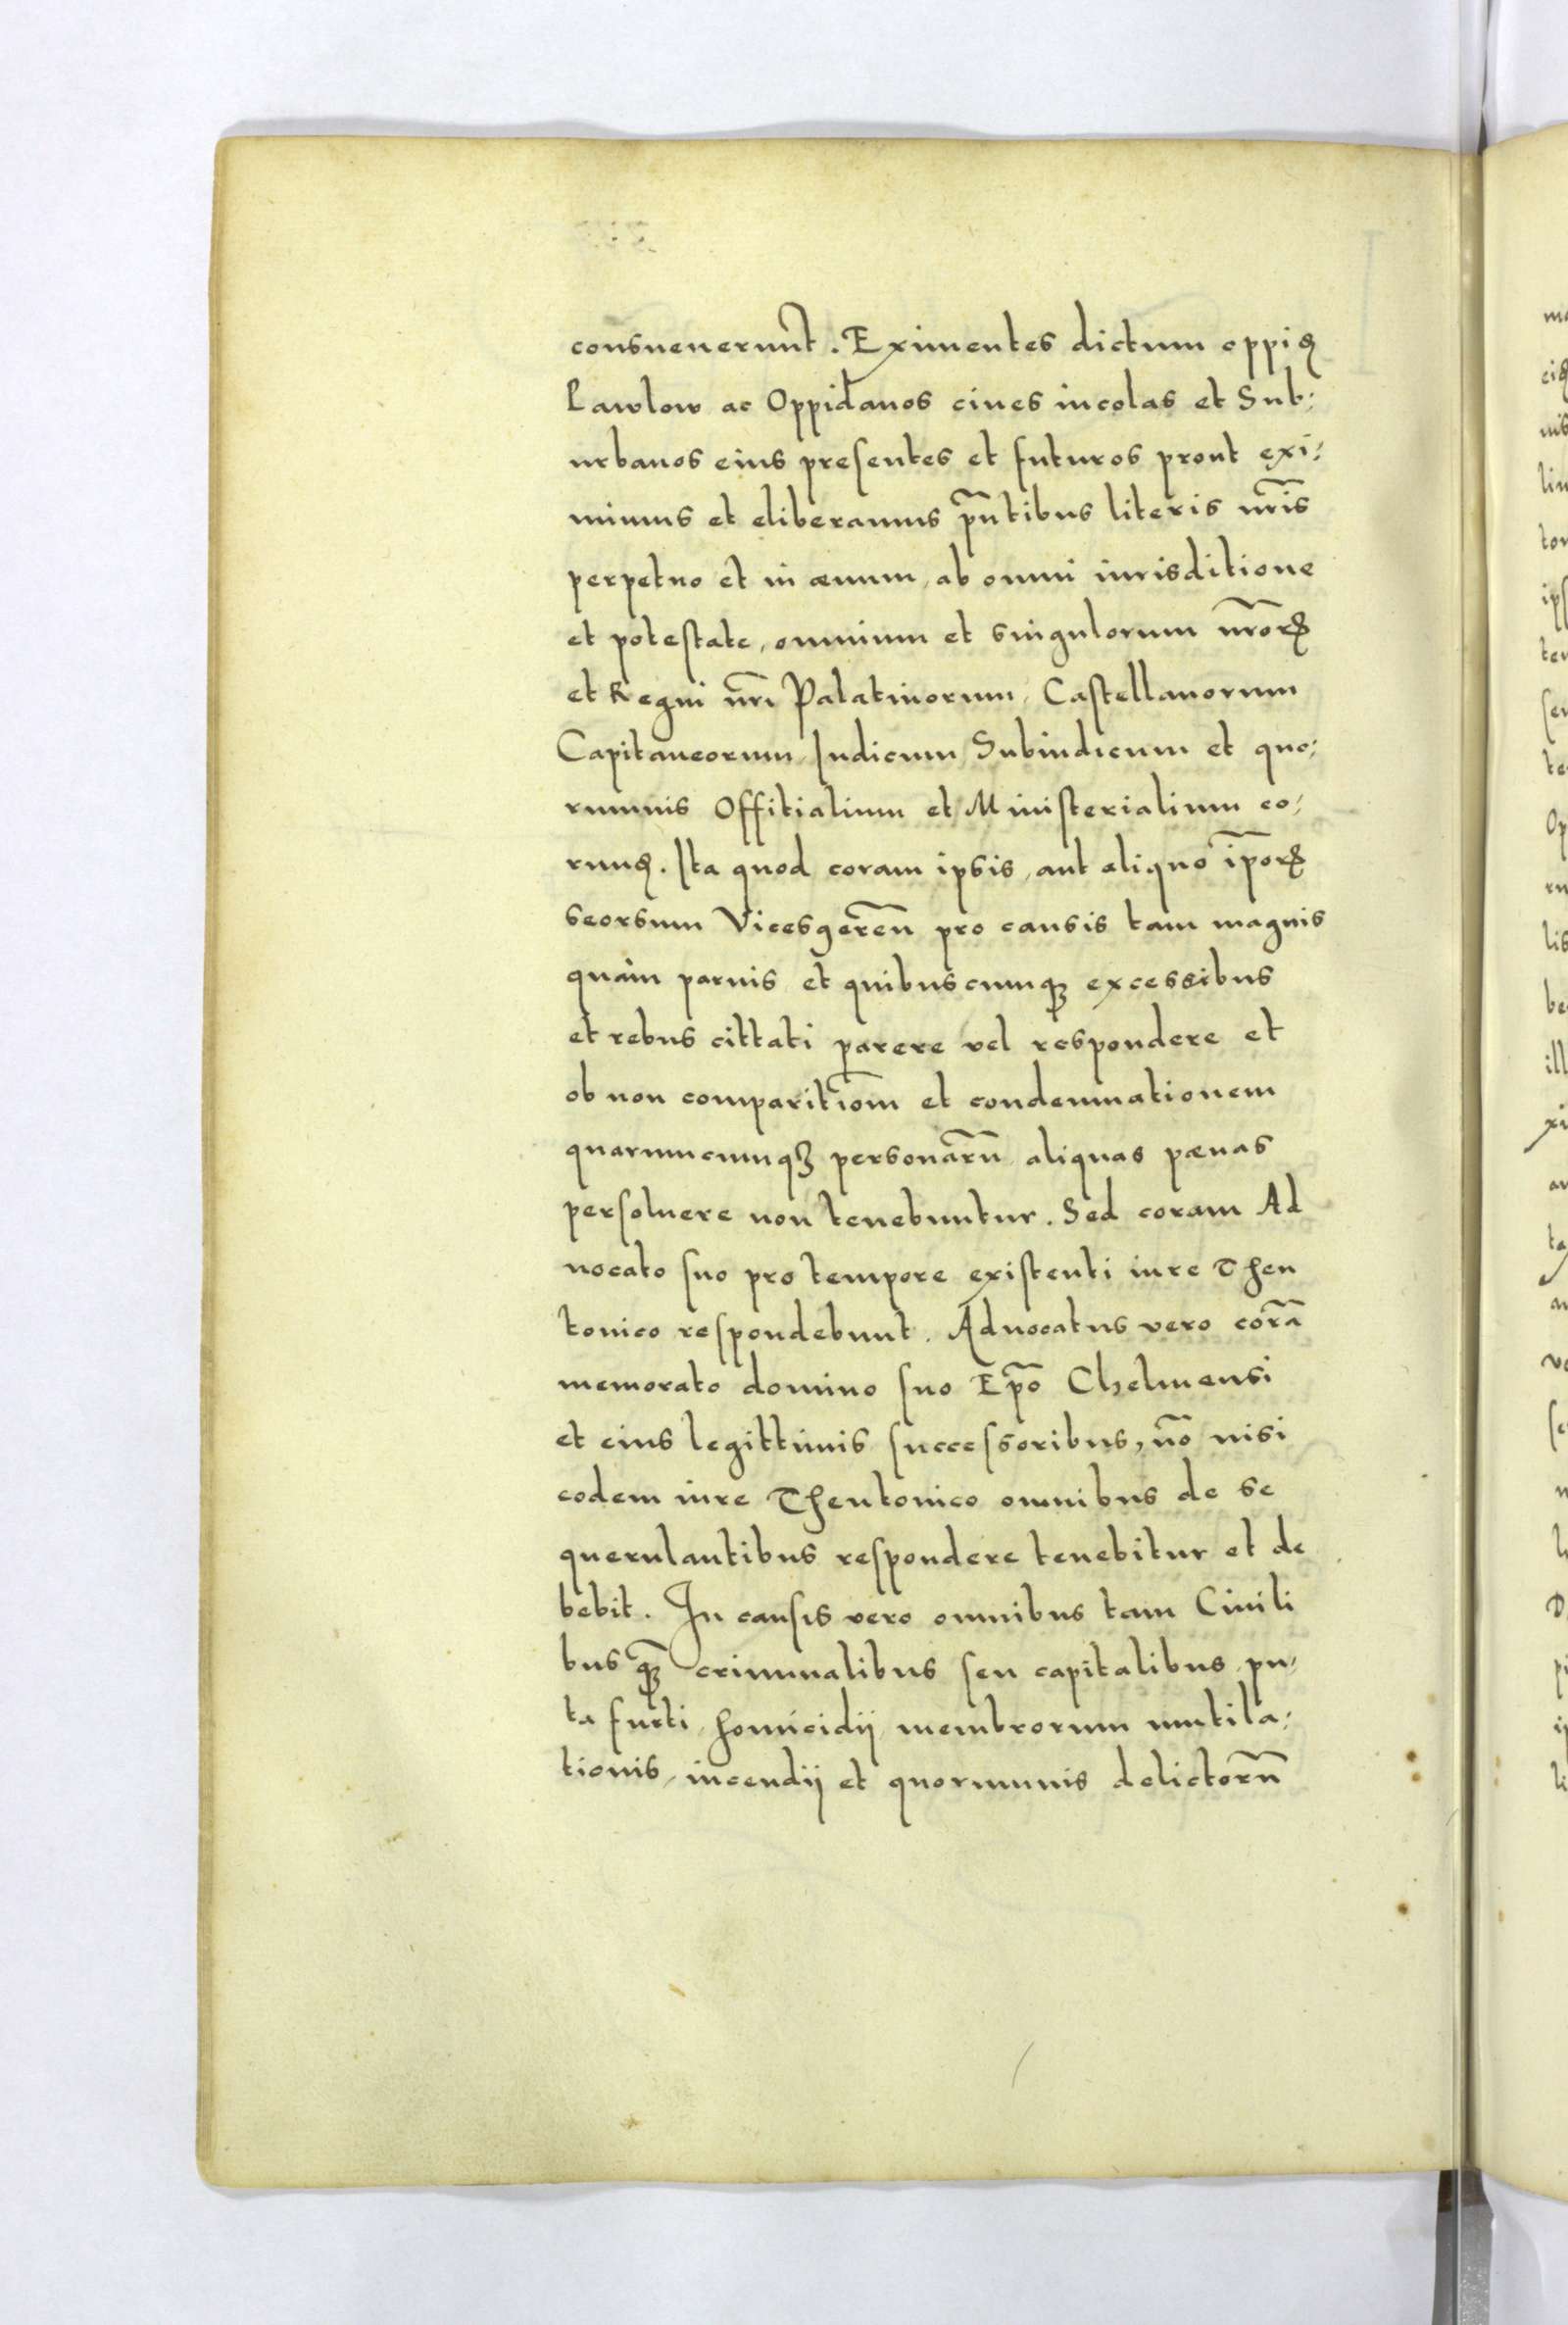 consueuerunt. Eximentes dictum oppiđ
Pawlow ac Oppidanos ciues incolas et Sub:
urbanos eius presentes et futuros prout exi:
mimus et eliberamus pñtibus literis nr̃is
perpetuo et in æuum, ab omni iurisditione
et potestate, omnium et singulorum nr̃orꝝ
et Regni nr̃i Palatinorum, Castellanorum
Capitaneorum, Iudicum, Subiudicum et quo:
rumuis Offitialium et Ministerialium eo:
rund. Ita quod coram ipsis, aut aliquo ip̃orꝝ
seorsum Vicesgereñ pro causis tam magnis
quàm paruis et quibuscumqꝫ excessibus
et rebus cittati parere vel respondere et
ob non comparitiom̃ et condemnationem
quarumcumqꝫ personarũ aliquas pænas
persoluere non tenebuntur. Sed coram Ad
uocato suo pro tempore existenti iure Theu
tonico respondebunt. Aduocatus vero corã
memorato domino suo Ep̃o Chelmensi
et eius legittimis successoribus, nõ nisi
eodem iure Theutonico omnibus de se
querulantibus respondere tenebitur et de
bebit. In causis vero omnibus tam Ciuili
bus qꝫ̃ criminalibus seu capitalibus, pu:
ta furti, homicidij, membrorum mutila:
tionis, incendij et quorumuis delictorũ